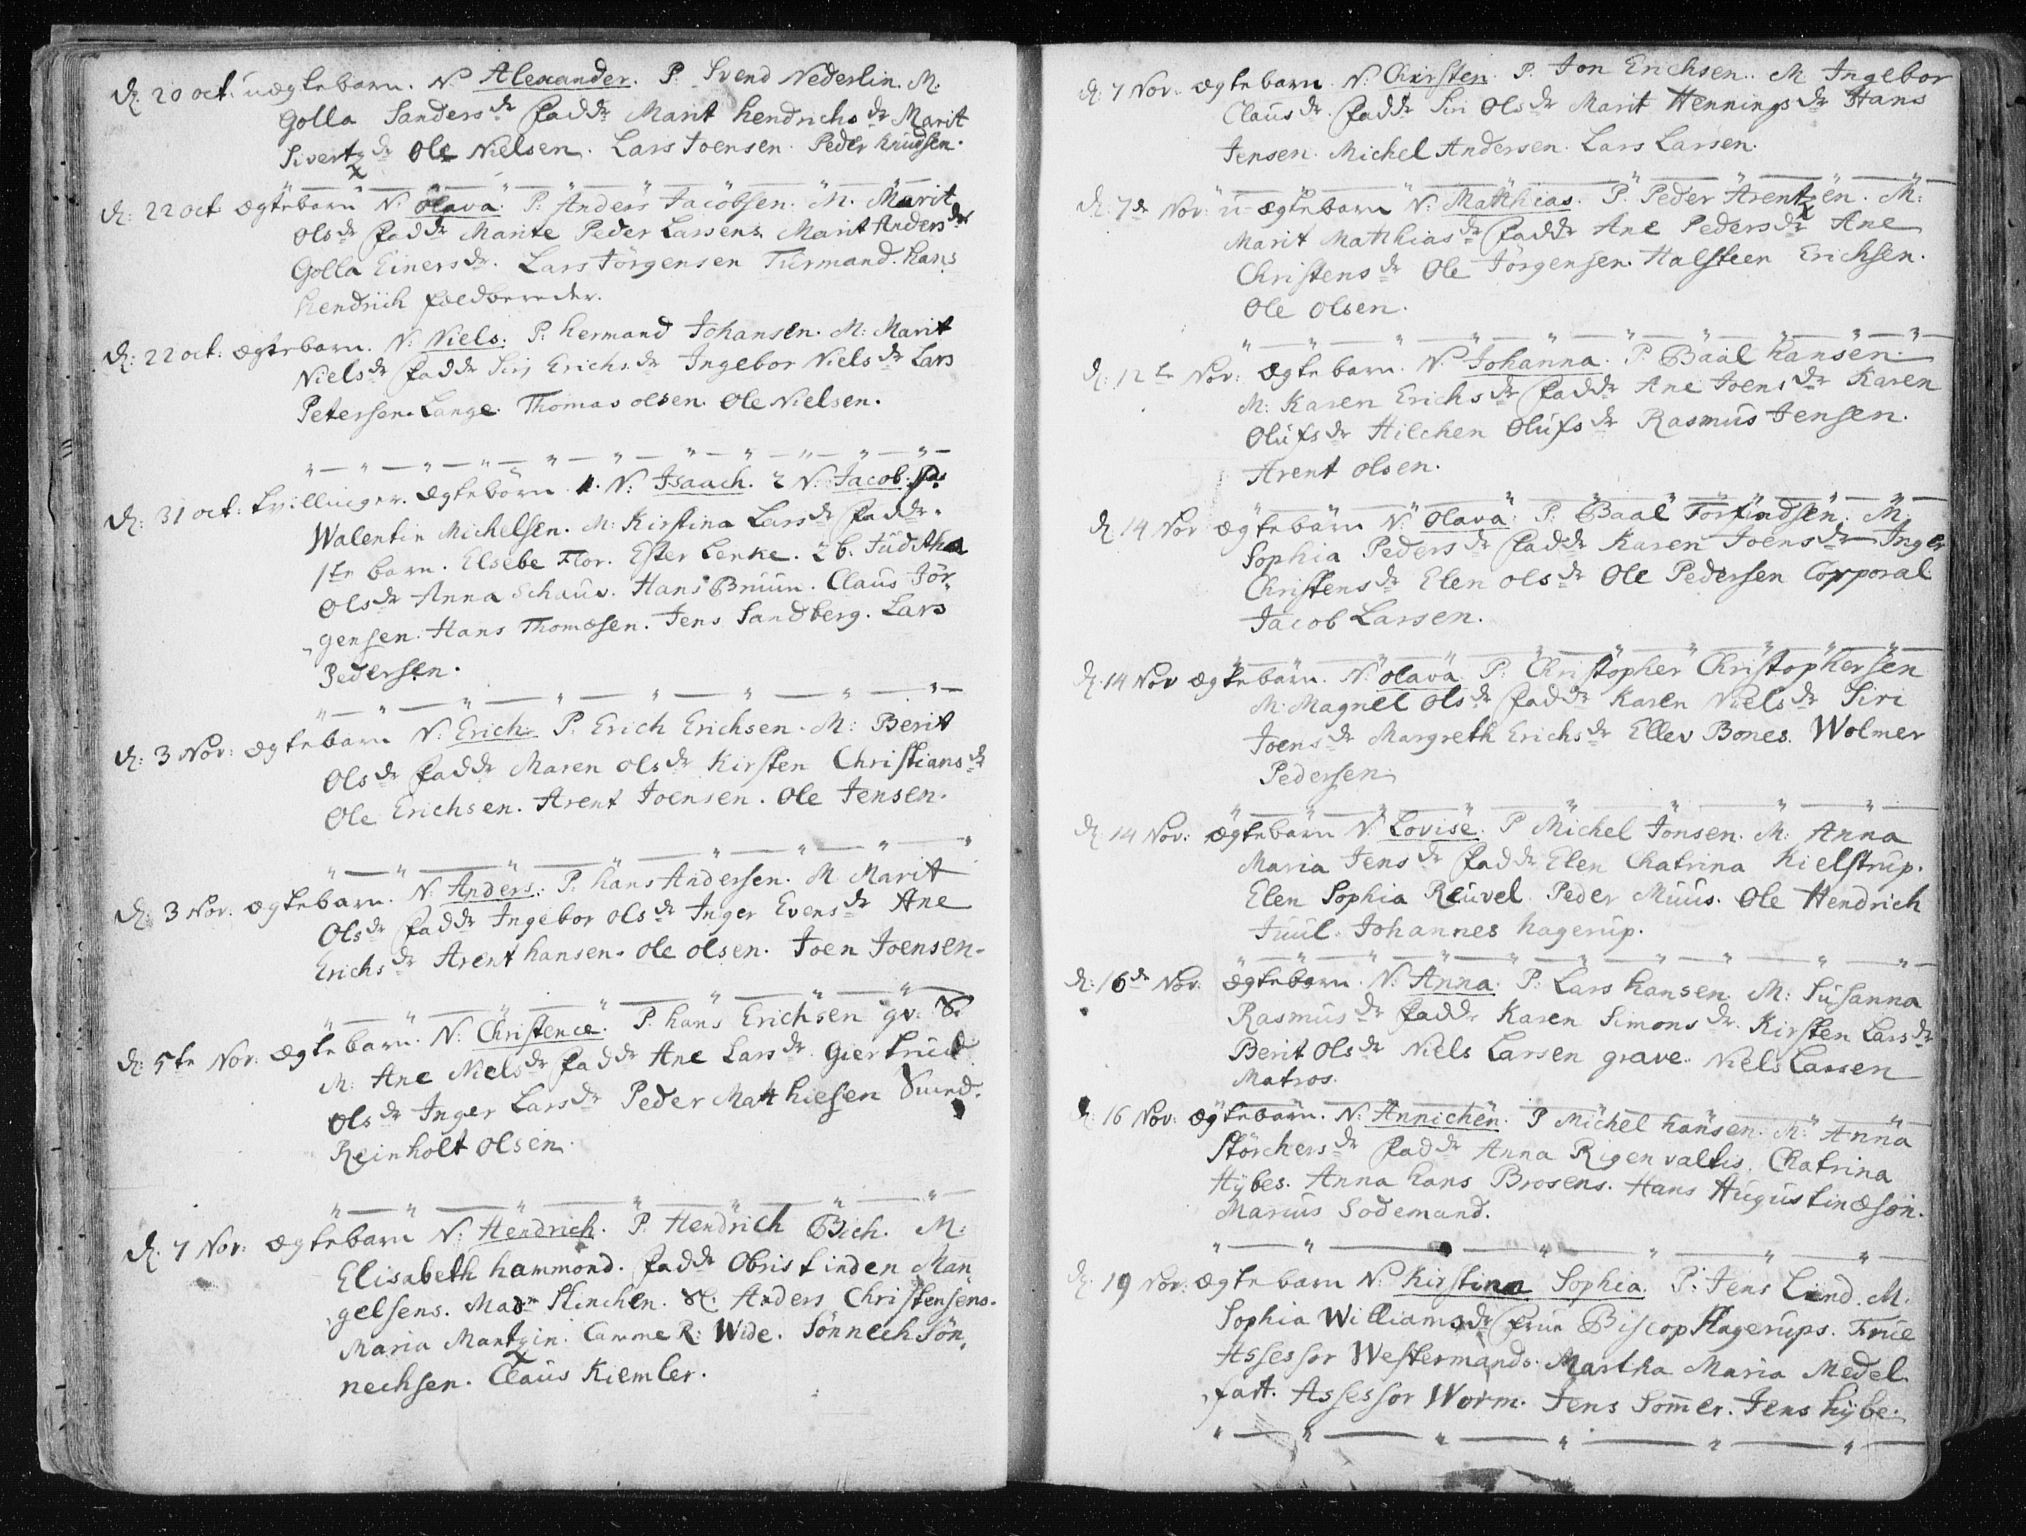 d: 20 oct: uægtebarn. N: Alexander. P: Svend Nederlin. M:
Golla Sandersdr fadd: Marit hendrichsdr Marit
Sivertzdr Ole Nielsen. Lars Joensen. Peder Knudsen.
d: 22 oct ægtebarn N: Olava. P: Anders Jacobsen. M: Marit
Olsdr fadd: Marite Peder Larsens. Marit Andersdr
Golla Einersdr. Lars Jörgensen Turmand. hans
hendrich foldbereder.
d: 22 oct: ægtebarn. N: Niels. P: hermand Johansen. M: Marit
Nielsdr fadd: Siri Erichsdr Ingebor Nielsdr Lars
Petersen Lange. Thomas olsen. Ole Nielsen.
d: 31 oct: tvillinger. ægtebörn. 1. N: Isaach. 2 N: Jacob.
Walentin Michelsen. M: Kirstina Larsdr fadd:
1ste barn. Elsebe Flor. Ester Lenke. 2 b. Juditha
Olsdr Anna Schaus. Hans Bruun. Claus Jör-
gensen. Hans Thomæsen. Jens Sandberg. Lars
Pedersen.
d: 3 Nov: ægtebarn N: Erich. P: Erich Erichsen. M: Berit
Olsdr fadd: Maren olsdr Kirsten Christiansdr
Ole Erichsen. Arent Joensen. Ole Jensen.
d: 3 Nov: ægtebarn. N: Anders. P: hans Andersen. M: Marit
Olsdr fadd: Ingebor olsdr Inger Evensdr Ane
Erichsdr Arent hansen. ole olsen. Joen Joensen.
d: 5te Nov: ægtebarn. N: Christence. P: hans Erichsen gv: S.
M: Ane Nielsdr fadd: Ane Larsdr. Giertrud
Olsdr Inger Larsdr Peder Matthiesen Svend.
Reinholt Olsen.
d: 7 Nov: ægtebarn N: Hendrich. P: Hendrich Bich. M:
Elisabeth hammond. fadd: Obristinden Man
gelsens. Madm Stinchen. Sl: Anders Christensens.
Maria Mantzin. Camme R: Wide. Sönnech Sön
nechsen. Claus Kiemler.
d: 7 Nov: ægtebarn. N: Chirsten. P: Jon Erichsen. M Ingebor
Clausdr. fadd: Siri Olsdr Marit Henningsdr Hans
Jensen. Michel Andersen. Lars Larsen.
d: 7de Nov: u-ægtebarn N: Matthias. P: Peder Arentzen. M:
Marit Mathiasdr fadd: Ane Pedersdr Ane
Christensdr Ole Jörgensen. Halsteen Erichsen.
Ole Olsen.
d: 12te Nov: Ægtebarn. N: Johanna. P: Baal hansen.
M: Karen Erichsdr fadd: Ane Joensdr Karen
Olufsdr Hilchen Olufsdr Rasmus Jensen.
Arent Olsen.
d: 14 Nov ægtebarn N: Olava. P: Baal Torfindsen. M:
Sophia Pedersdr fadd: Karen Joensdr Inger
Christensdr Elen olsdr Ole Pedersen Copporal
Jacob Larsen.
d: 14 Nov ægtebarn. N: olava P: Christopher Christophersen
M: Magnel Olsdr fadd: Karen Nielsdr Siri
Joensdr Margreth Erichsdr Ellev Bones. Wolmer
Pedersen.
d: 14 Nov: ægtebarn N: Lovise. P Michel Jonsen. M: Anna
Maria Jensdr fadd: Elen Chatrina Kielstrup.
Elen Sophia Reuvel. Peder Muus. Ole Hendrich
Juul. Johannes hagerup.
d: 16de Nov: ægtebarn. N: Anna. P: Lars hansen. M: Susanna
Rasmusdr fadd: Karen Simonsdr. Kirsten Larsdr
Berit Olsdr Niels Larsen grave. Niels Larsen
Matros.
d: 16 Nov: ægtebarn. N: Annichen. P Michel hansen. M: Anna
Störchersdr fadd: Anna Rigenvaltis. Chatrina
Hÿbes. Anna hans Brosens. Hans Augustinæsön.
Marius Sodemand.
d: 19 Nov: ægtebarn N: Kirstina Sophia. P: Jens Lind. M:
Sophia Williamsdr frue Biscop Hagerups. Frue
Assessor Westermands. Martha Maria Medel
fart. Assessor Worm. Jens Som̄er. Jens hÿbe.